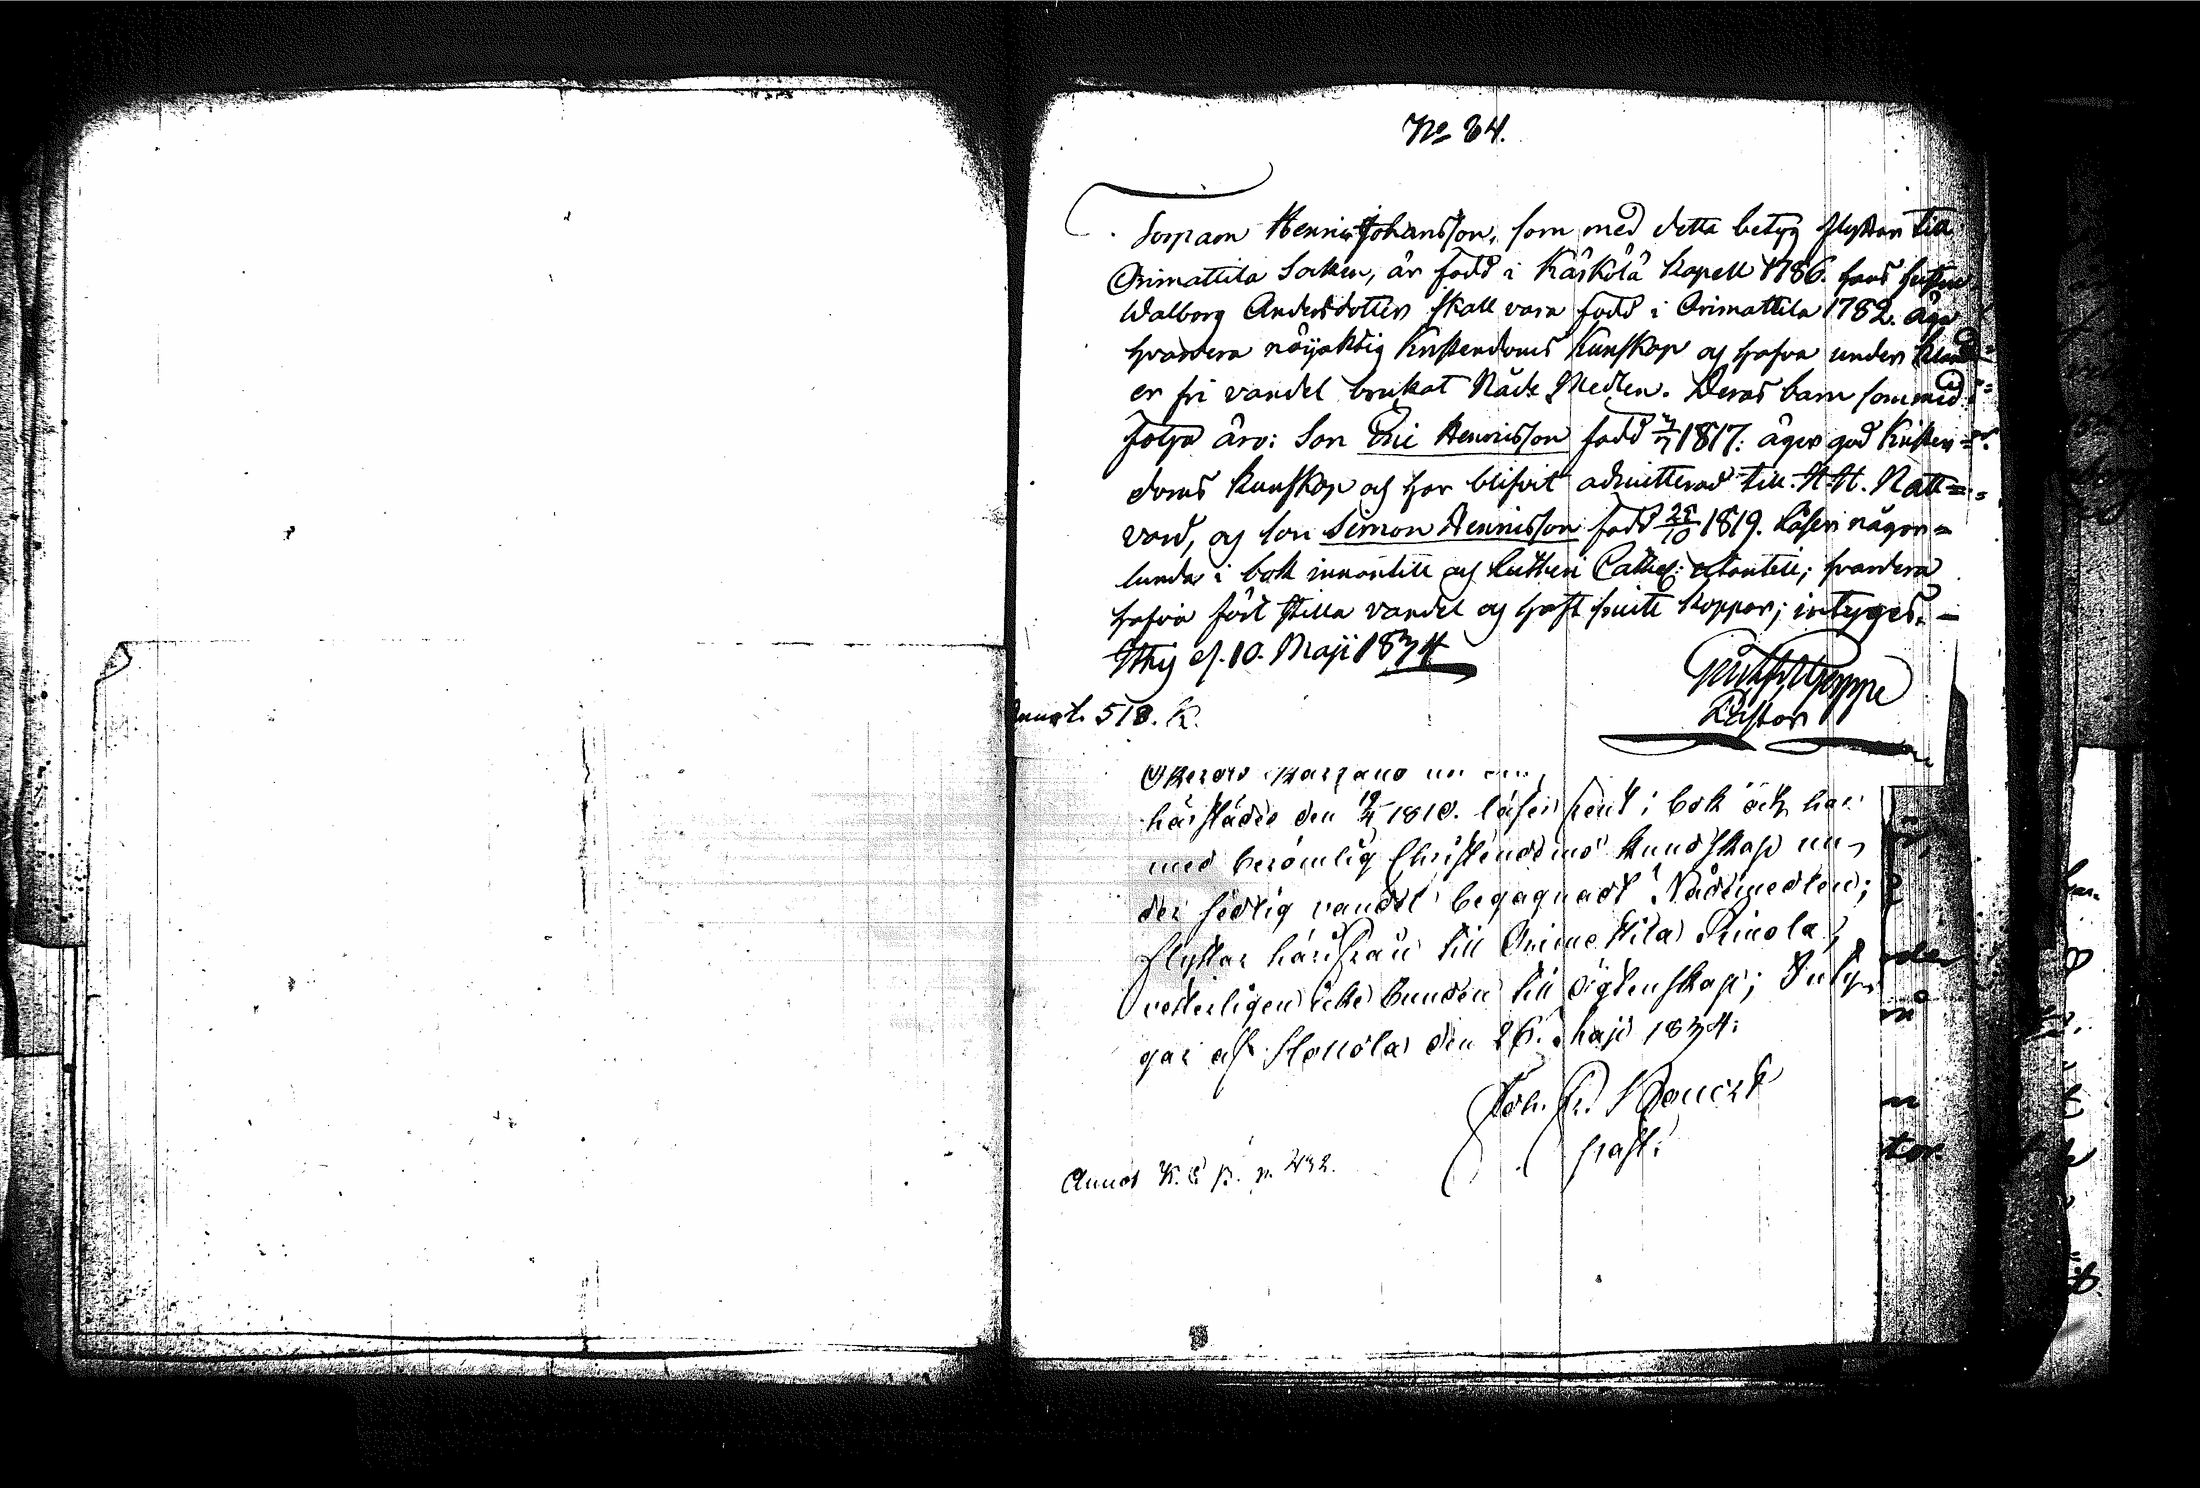 No 34.
Torparn Henric Johansson, som med detta betyg flyttar till
Orimattila Socken, är född i Kärkölä Kapell 1786. hans hustru
Walborg Andersdotter skall vara född i Orimattila 1782. äga
hvardera nöjaktig Kristendoms Kunskap och hafva under kland-
er fri vandel brukat Nåde Medlen. Deras barn som med-
följa äro: Son Eric Henricsson född 1817. äger god Kristen-
doms Kunskap och har blifvit admitterad till H.H. Natt-
vard, och son Simon Henricsson född 25/10 1819. Läser någor-
lunda i bok innantill och Lutheri Catheches: utantill; hvardera
hafva fört stilla vandel och haft smitt koppor; intygas. -
af. 10. Maji 1834
Pastor
Annot. 518. K.
härstädes den 1810. läser rent i bok och har
med berömlig Christendoms kundskap un-
der sedlig vandel begagnadt Nådemedlen;
flyttar härifrån till Orimattila
veterligen icke bunden till ägtenskap; Inty-
gar af Hollola den 26. Maji 1834.
Joh. Fr.
past:
Annot K. B p. 432.
der
tor.